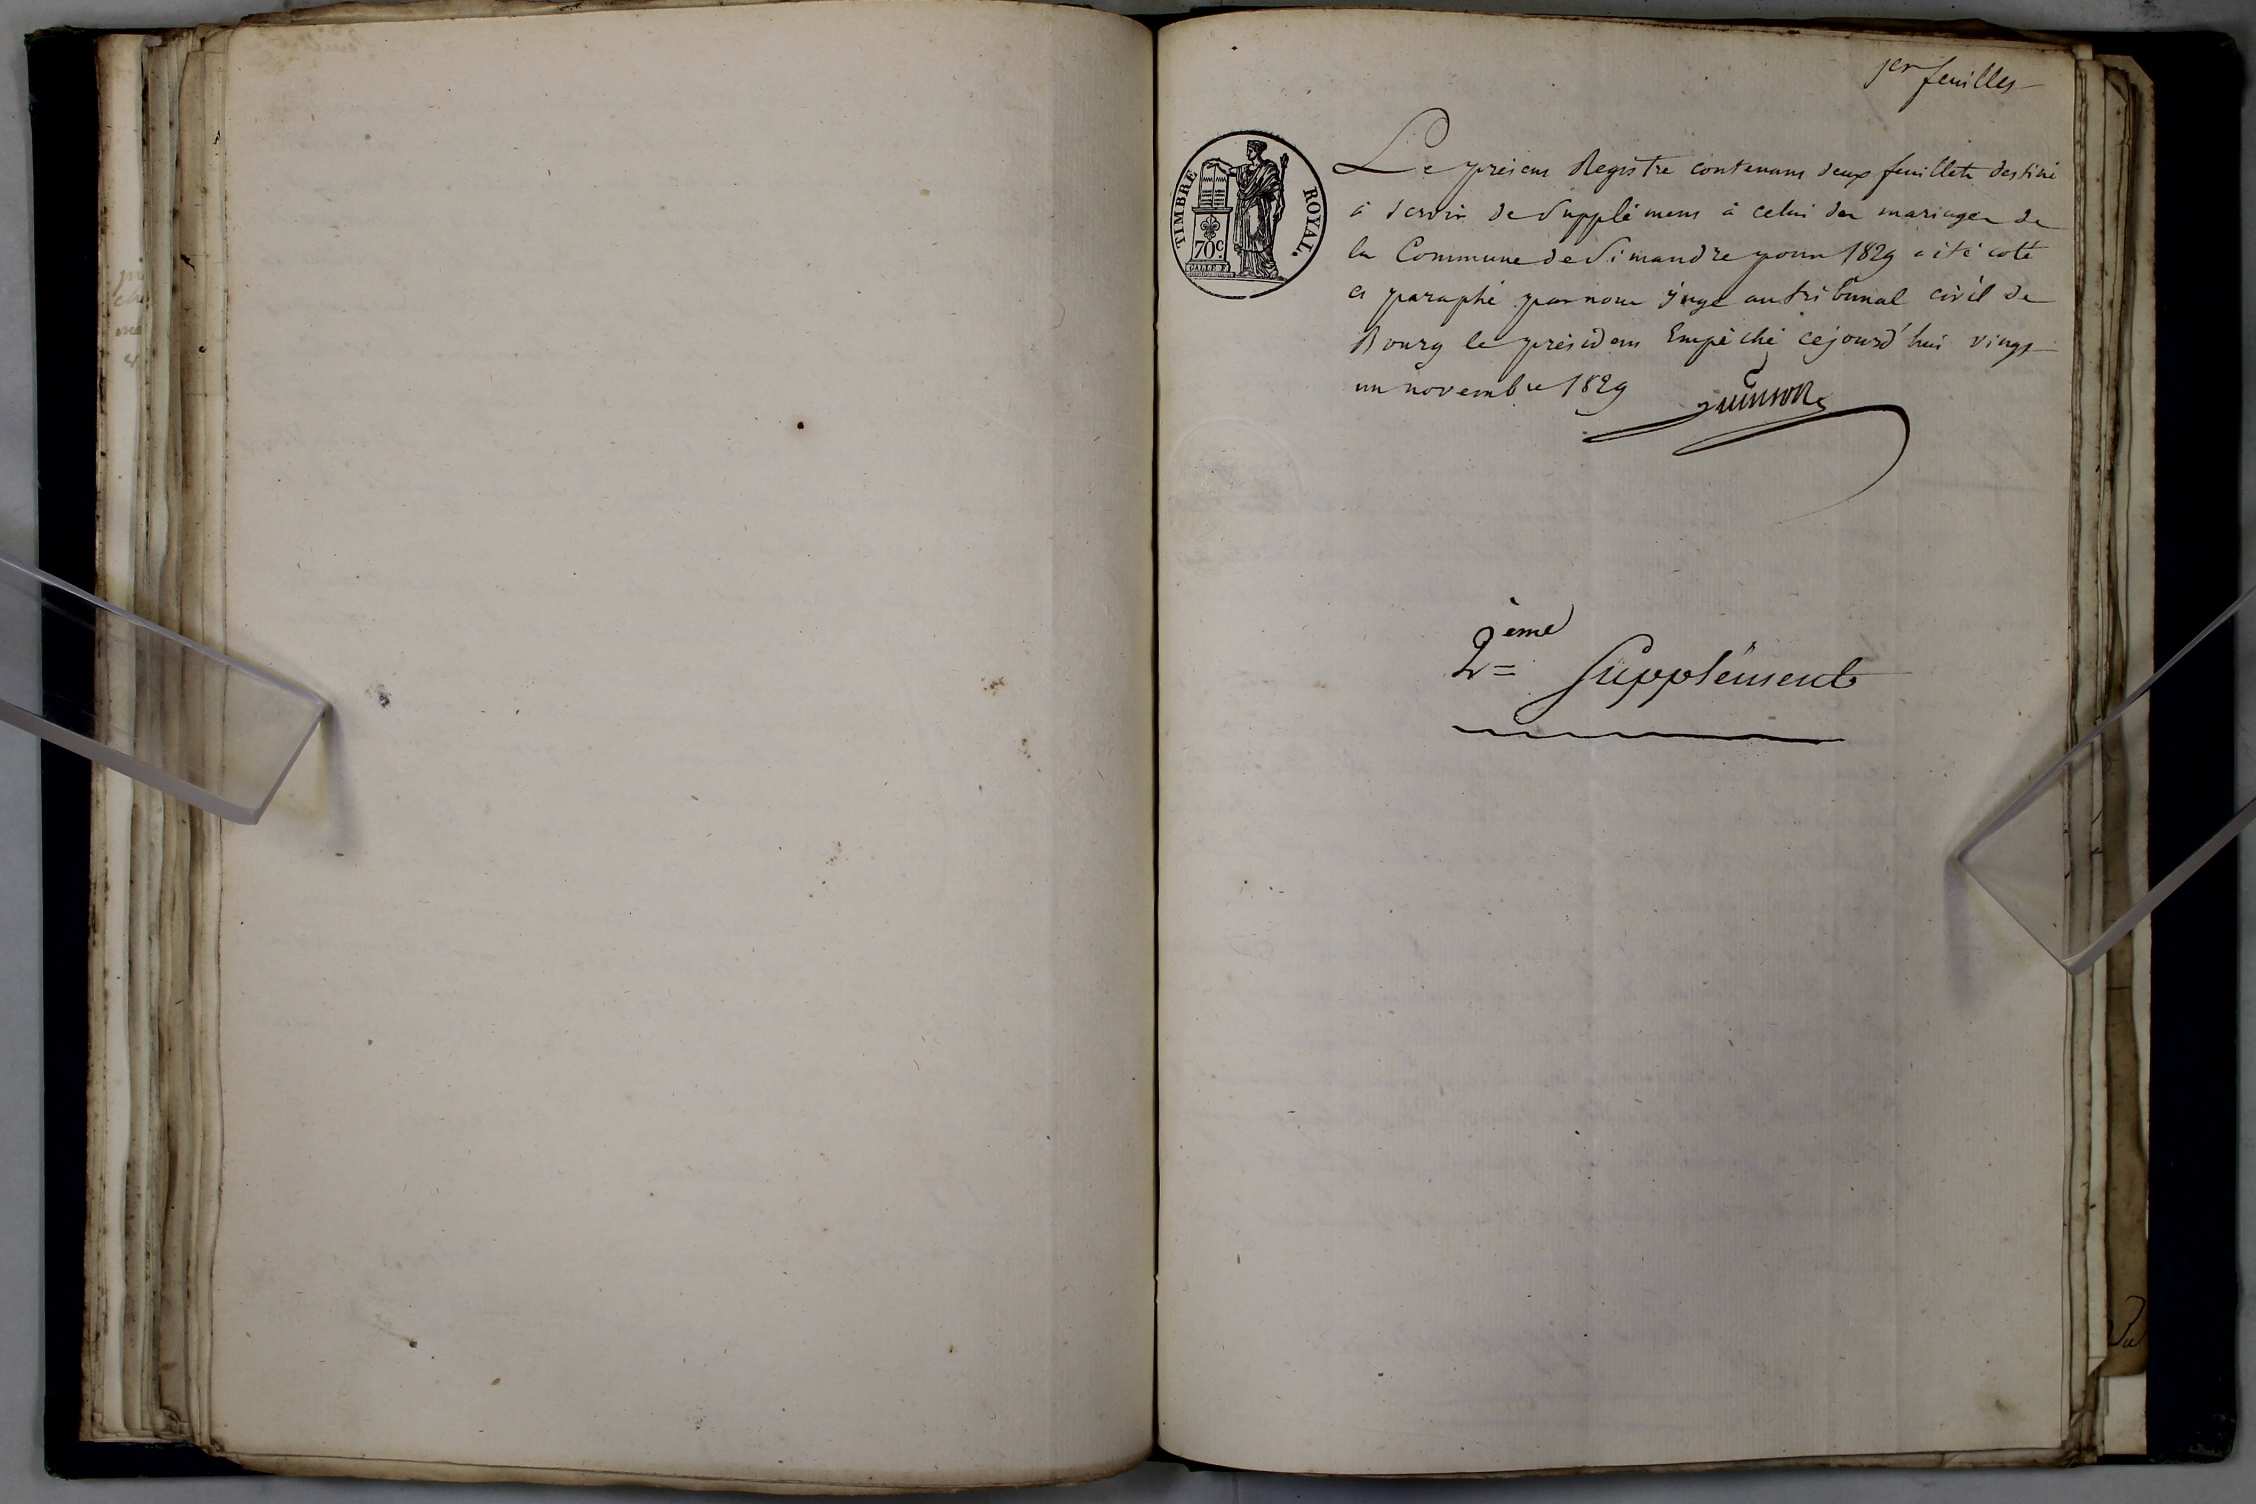 1er feuillet
TIMBRE ROYAL.
70c
Le présent Registre contenant deux feuillets destiné
à servir de Supplément à celui des mariages de
la Commune de Simandre pour 1829 a été coté
et paraphé par nous juge au tribunal civil de
Bourg le président Empêché cejourd'hui vingt
un novembre 1829
2ème Supplément